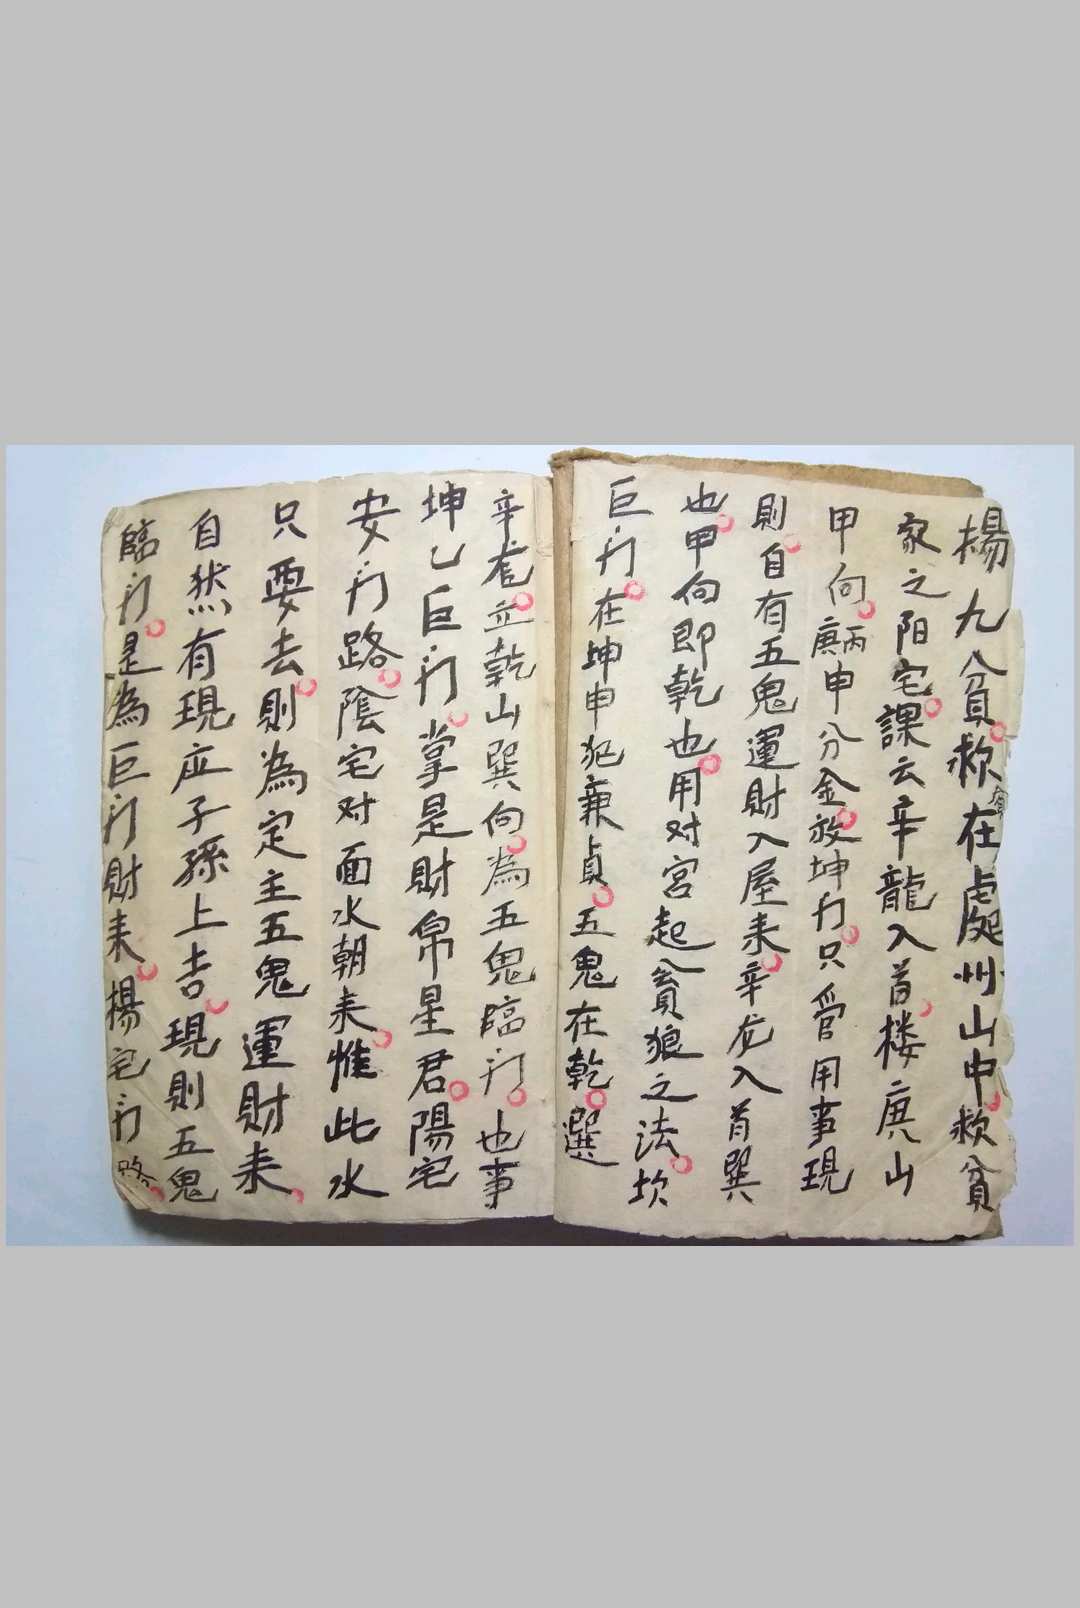 楊九貧。救在處州山中。救貧
家之阳宅。課云辛龍入首。楼庚山
甲向。庚丙申分金。放坤门。只管用事現
則。自有五鬼運財入屋来。辛龙入首巽
也。甲向即乾也。用对宮起貪狼之法。坎
巨门。在坤申犯亷貞。五鬼在乾。選
辛龙。立乾山巽向。為五鬼臨门。也事
坤乙巨门。掌是財帛星君。陽宅
安门路。陰宅对面水朝来。惟此水
只要去。則為定主五鬼運財来。
自然有現应子孫上吉。現則五鬼
臨门。是為巨门財来。楊宅门路。